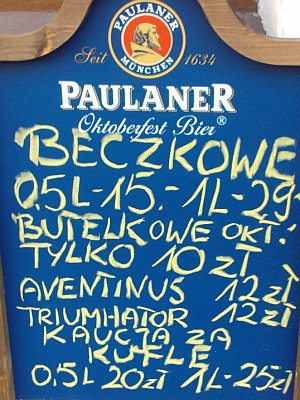 PAULANER
MÜNCHEN
Seit 1634
PAULANER
Oktoberfest Bier®
BECZKOWE
0,5L-15.-1L-29-
BUTELKOWE OKT.:
TYLKO 10 ZŁ
AVENTINUS 12 ZŁ
TRIUMHATOR 12 ZŁ
KAUCJA ZA
KUFLE
0,5L 20ZŁ 1L-25ZŁ